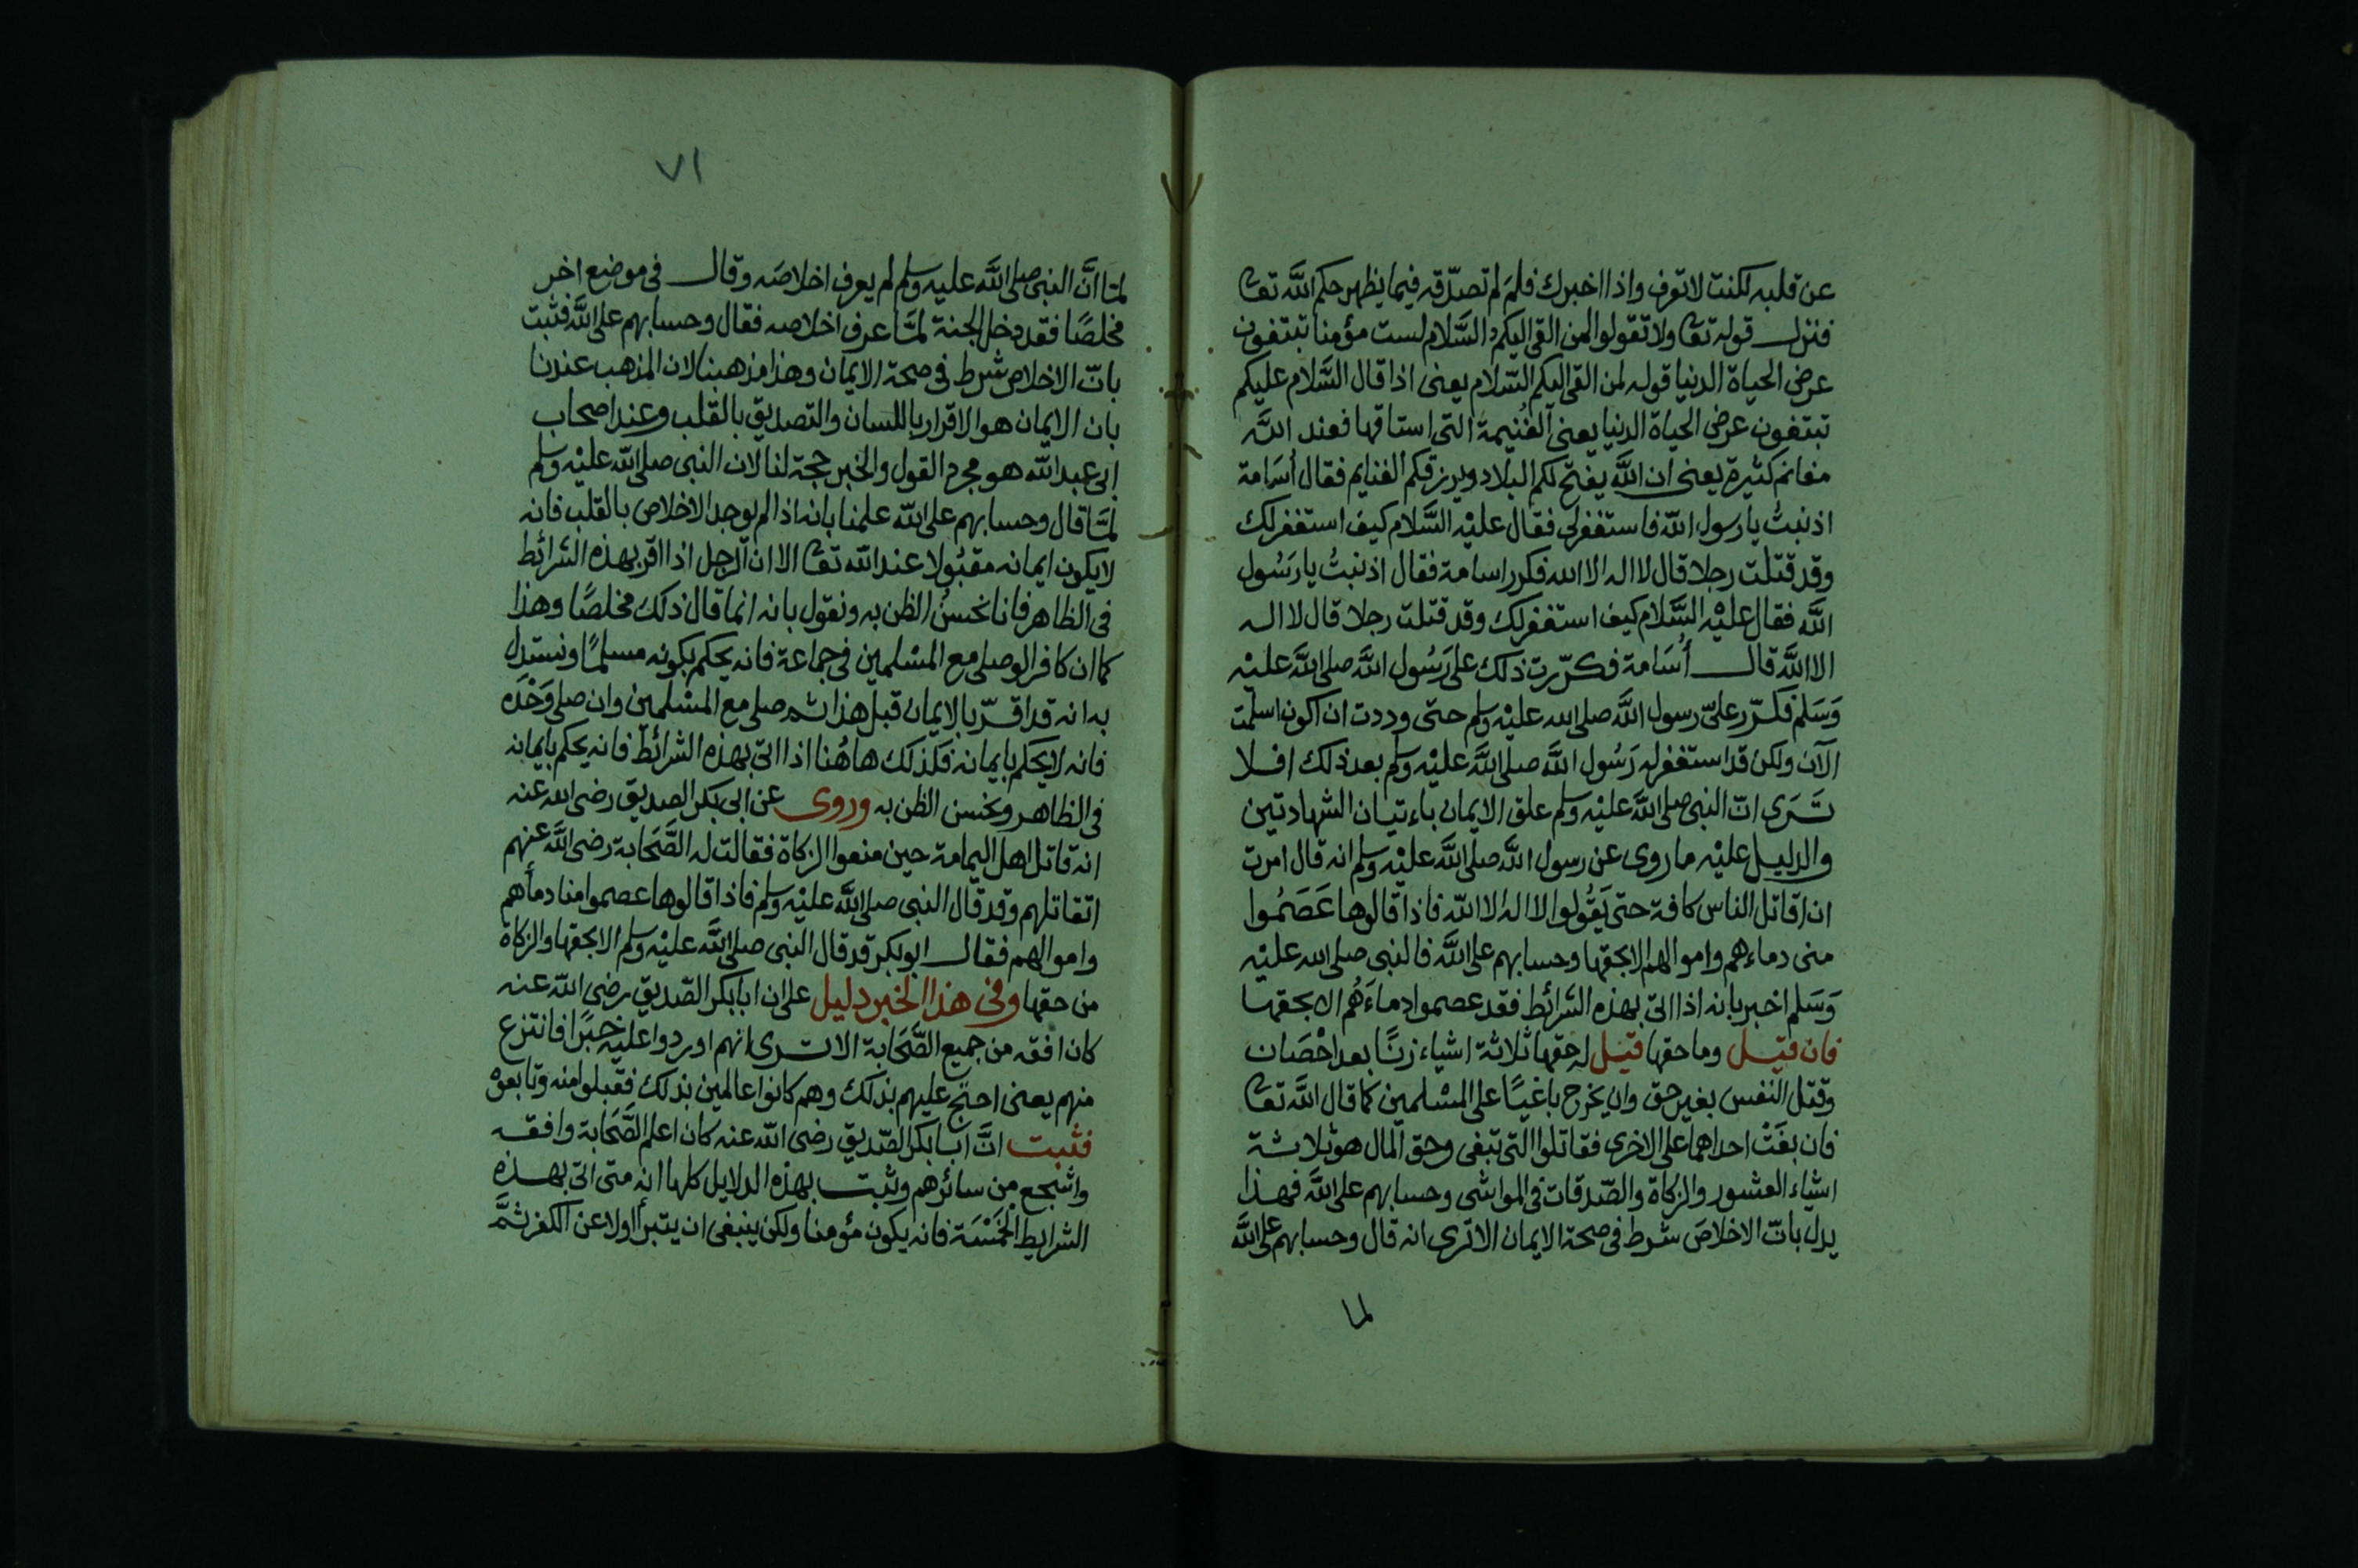 عن قلبه لكنت لا توف واذا اخبرك فلم لم تصدّقه فيما يظهر حكم اللّه تعا
فنزل قوله تعا ولا تقولوا لمن القى اليكم السّلام لست مؤمنا تبتغون
عرض الحياة الدنيا قوله لمن القى اليكم السّلام يعنى اذا قال السّلام عليكم
تبتغون عرض الحياة الدنيا يعنى الغُنيمة التى استاقها فعند اللّه
مغانم كثيرة يعنى ان اللّه يفتح لكم البلاد ويرزقكم الغنايم فقال أسَامة
اذنبتُ يا رسول اللّه فاستغفر لى فقال عليْه السَّلام كيف استغفر لك
وقد قتلت رجلا قال لا اله الا اللّه فكرر اسامة فقال اذنبتُ يا رَسُول
اللّه فقال عليْه السَّلام كيف استغفر لك وقد قتلت رجلا قال لا اله
الا اللّه قال أُسَامة فكرّرت ذلك على رَسُول اللّه صلى اللّه عليْه
وَسَلم فكرّر علىّ رسول اللّه صلى الله عليْه وسلم حتى وددت ان اكون اسلمت
الآن ولكن قد استغفر له رَسُول اللّه صلى اللّه عليْه وسلم بعد ذلك افلا
تَرَى انّ النبى صلى اللّه عليْه وسلم علق الايمان باءتيان الشهادتين
والدليل عليْه ما روى عن رسول اللّه صلى اللّه عليْه وسلم انه قال امرت
ان اقاتل الناس كافة حتى يَقُولوا لا اله الا اللّه فاذا قالوها عَصَمُوا
منى دماءهم واموالهم الا بحقها وحسابهم على اللّه فالنبى صلى الله عليْه
وَسَلم اخبر بانه اذا اتى بهذه الشرائط فقد عصموا دماءَهُم الا بحقها
فان قيل وما حقها قيل له حقها ثلاثة اشياء زنًا بعد احْصَان
وقتل النفس بغير حق وان يخرج باغيًا على المسْلمين كما قال اللّه تعا
فان بغَتْ احداهما على الاخرى فقاتلوا التى تبغى وحق المال هو ثلاثة
اشياء العشور والزكاة والصّدقات فى المواشى وحسابهم على اللّه فهذا
يدل بانّ الاخلاصَ شرط فى صحة الايمان الا ترى انه قال وحسابهم على اللّه
لما
٧١
لما انَّ النبى صلى اللّه عليه وسلم لم يعرف اخلاصَه وقال فى موضع اخر
مخلصًا فقد دخل الجنة لمّا عرف اخلاصه فقال وحسابهم على اللّه فثبت
بانّ الاخلاص شرط فى صحة الايمان وهذا مذهبنا لان المذهب عندنا
بان الايمان هو الاقرار باللسان والتصديق بالقلب وعند اصحاب
ابى عبد اللّه هو مجرد القول والخبر حجة لنا لان النبى صلى اللّه عليْه وسلم
لمّا قال وحسابهم على اللّه علمنا بانه اذا لم يوجد الاخلاص بالقلب فانه
لا يكون ايمانه مقبُولا عند اللّه تعا الا ان الرجل اذا اقر بهذه الشرائط
فى الظاهر فانا نحسنُ الظن به ونقول بانه انما قال ذلك مخلصًا وهذا
كما ان كافرا لو صلى مع المسْلمين فى جماعة فانه يحكم بكونه مسلمًا ونستدل
به انه قد اقرّ بالايمان قبل هذا ثم صلى مع المسْلمين وان صلى وَحْدَه
فانه لا يحكم بايمانه فكذلك هاهُنا اذا اتى بهذه الشرائط فانه يحكم بايمانه
فى الظاهر ونحسن الظن به وروى عن ابى بكر الصديق رضى الله عنه
انه قاتل اهل اليمامة حين منعوا الزكاة فقالت له الصَّحَابة رضى اللّه عنهم
اتقاتلهم وقد قال النبى صلى اللّه عليْه وسلم فاذا قالوها عصموا منا دمأهم
واموالهم فقال ابو بكر قد قال النبى صلى اللّه عليْه وسلم الا بحقها والزكاة
من حقها وفى هذا الخبر دليل على ان ابا بكر الصّديق رضى اللّه عنه
كان افقه من جميع الصَّحَابة الا ترى انهم اوردوا عليه خبرًا فانتزع
منهم يعنى احتج عليهم بذلك وهم كانوا عالمين بذلك فقبلوا منه وتابعوْ
فثبت انَّ ابا بكر الصّديق رضى اللّه عنه كان اعلم الصَّحَابة وافقه
واشجع من سائرهم وثبت بهذه الدلايل كلها انه متى اتى بهذه
الشرايط الخمسَة فانه يكون مؤمنا ولكن ينبغى ان يتبرأ اولا عن الكفر ثمَّ